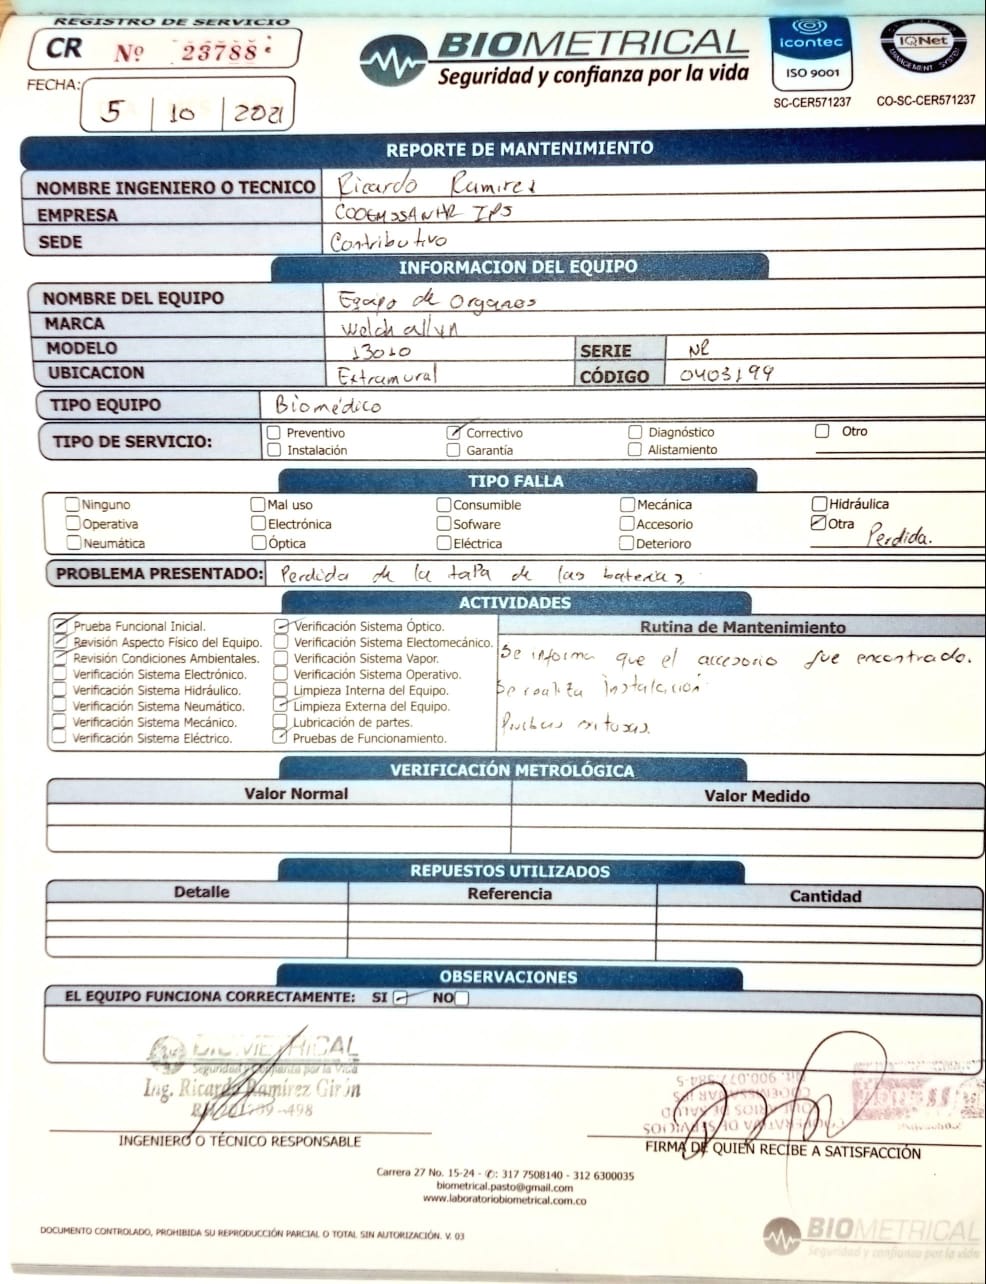 REGISTRO DE SERVICIO
CR Nº 23788
FECHA: 5 | 10 | 2021
BIOMETRICAL
Seguridad y confianza por la vida
icontec
ISO 9001
SC-CER571237
IQNet
MANAGEMENT SYSTEM
CO-SC-CER571237
REPORTE DE MANTENIMIENTO
NOMBRE INGENIERO O TECNICO Ricardo Ramirez
EMPRESA COOEMSSANAR IPS
SEDE Contributivo
INFORMACION DEL EQUIPO
NOMBRE DEL EQUIPO Equipo de Organos
MARCA Welch allyn
MODELO 13010 SERIE NR
UBICACION Extramural CÓDIGO 0403199
TIPO EQUIPO Biomédico
TIPO DE SERVICIO:
Preventivo Correctivo Diagnóstico Otro
Instalación Garantía Alistamiento
TIPO FALLA
Ninguno Mal uso Consumible Mecánica Hidráulica
Operativa Electrónica Sofware Accesorio Otra Perdida.
Neumática Óptica Eléctrica Deterioro
PROBLEMA PRESENTADO: Perdida de la tapa de las baterias.
ACTIVIDADES
Prueba Funcional Inicial.
Revisión Aspecto Físico del Equipo.
Revisión Condiciones Ambientales.
Verificación Sistema Electrónico.
Verificación Sistema Hidráulico.
Verificación Sistema Neumático.
Verificación Sistema Mecánico.
Verificación Sistema Eléctrico.
Verificación Sistema Óptico.
Verificación Sistema Electomecánico.
Verificación Sistema Vapor.
Verificación Sistema Operativo.
Limpieza Interna del Equipo.
Limpieza Externa del Equipo.
Lubricación de partes.
Pruebas de Funcionamiento.
Rutina de Mantenimiento
Se informa que el accesorio fue encontrado.
Se realiza instalación
Pruebas exitosas.
VERIFICACIÓN METROLÓGICA
Valor Normal Valor Medido
REPUESTOS UTILIZADOS
Detalle Referencia Cantidad
OBSERVACIONES
EL EQUIPO FUNCIONA CORRECTAMENTE: SI NO
BIOMETRICAL
Seguridad y confianza por la vida
Ing. Ricardo Ramírez Girón
INGENIERO O TÉCNICO RESPONSABLE
COOPERATIVA DE SERVICIOS
SOLIDARIOS DE SALUD
COOEMSSANAR IPS
FIRMA DE QUIEN RECIBE A SATISFACCIÓN
Carrera 27 No. 15-24 - ✆: 317 7508140 - 312 6300035
biometrical.pasto@gmail.com
www.laboratoriobiometrical.com.co
DOCUMENTO CONTROLADO, PROHIBIDA SU REPRODUCCIÓN PARCIAL O TOTAL SIN AUTORIZACIÓN. V. 03
BIOMETRICAL
Seguridad y confianza por la vida